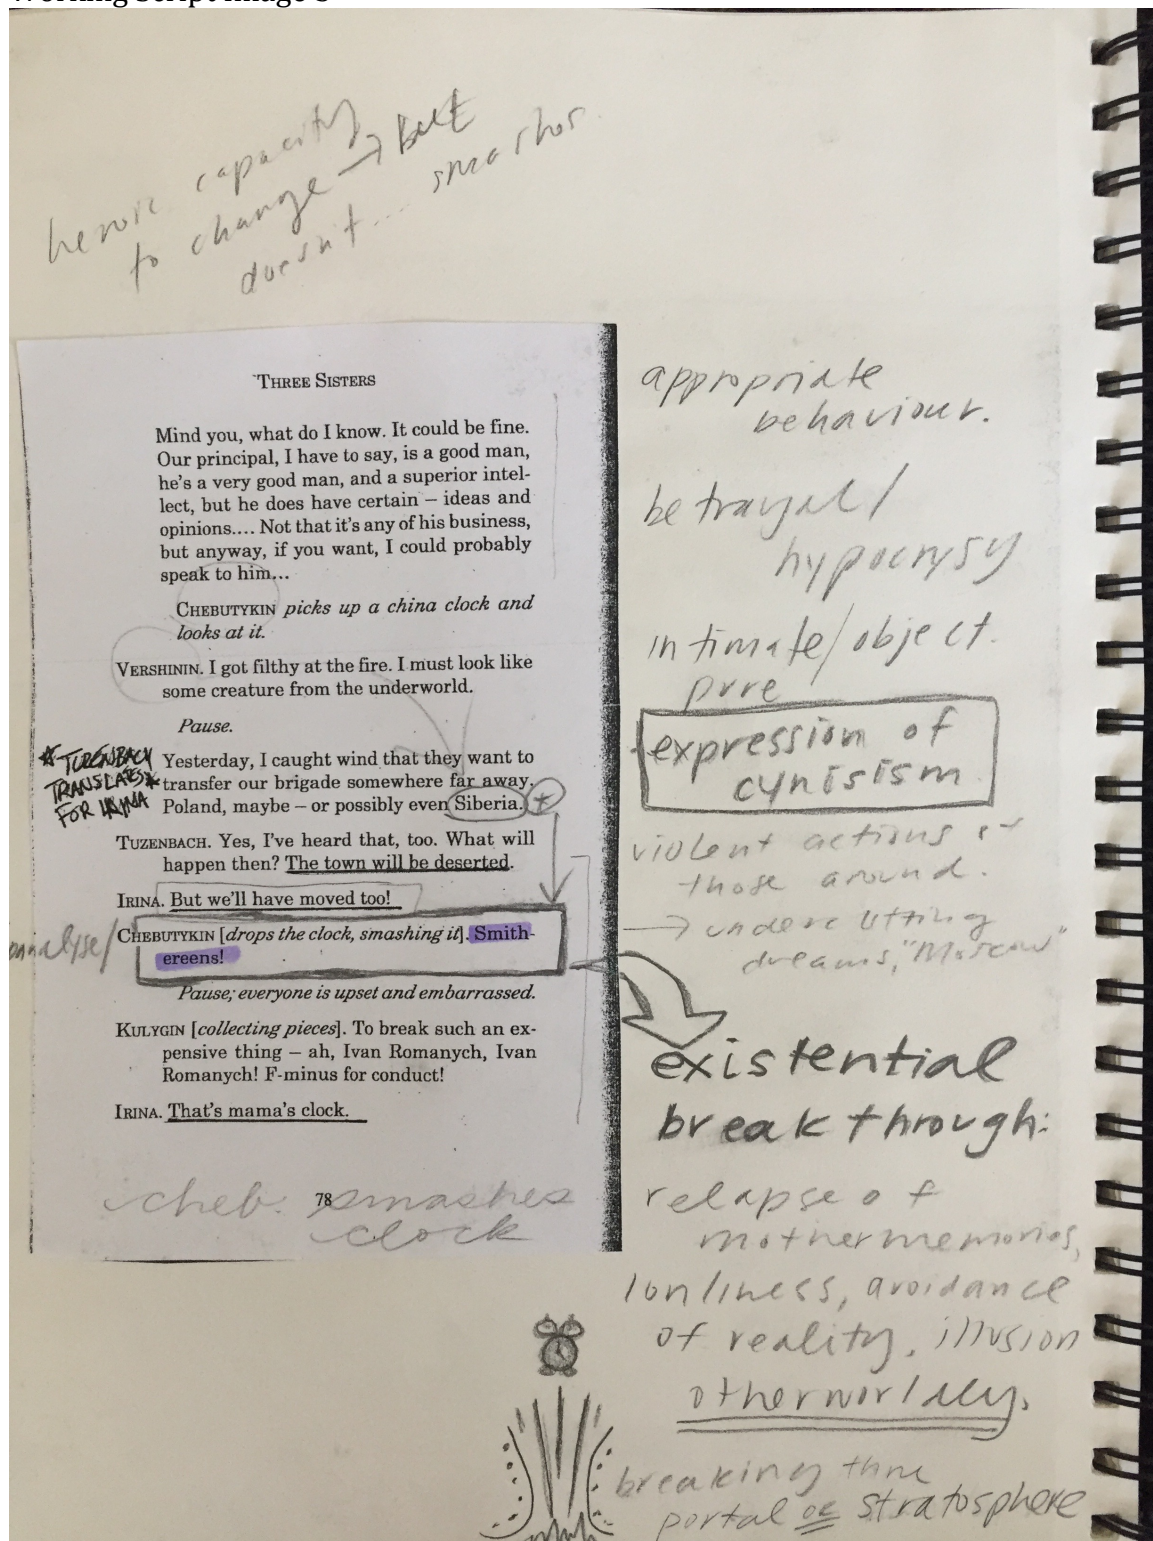 heroic capacity
to change → But
doesn't... smashes
THREE SISTERS
Mind you, what do I know. It could be fine.
Our principal, I have to say, is a good man,
he's a very good man, and a superior intel-
lect, but he does have certain – ideas and
opinions.... Not that it's any of his business,
but anyway, if you want, I could probably
speak to him...
CHEBUTYKIN picks up a china clock and
looks at it.
VERSHININ. I got filthy at the fire. I must look like
some creature from the underworld.
Pause.
Yesterday, I caught wind that they want to
transfer our brigade somewhere far away.
Poland, maybe – or possibly even Siberia. +
TRANSLATES
FOR IRINA
TUZENBACH. Yes, I've heard that, too. What will
happen then? The town will be deserted.
IRINA. But we'll have moved too!
analyse/
CHEBUTYKIN [drops the clock, smashing it]. Smith-
ereens!
Pause; everyone is upset and embarrassed.
KULYGIN [collecting pieces]. To break such an ex-
pensive thing – ah, Ivan Romanych, Ivan
Romanych! F-minus for conduct!
IRINA. That's mama's clock.
78
cheb. smashes
clock
appropriate
behaviour.
betrayal/
hypocrysy
intimate/object.
pure
expression of
cynisism
violent actions of
those around.
→ undercutting
dreams, "Moscow"
existential
breakthrough:
relapse of
mother memories,
lonliness, avoidance
of reality, illusion
otherworldly.
breaking thru
portal or stratosphere